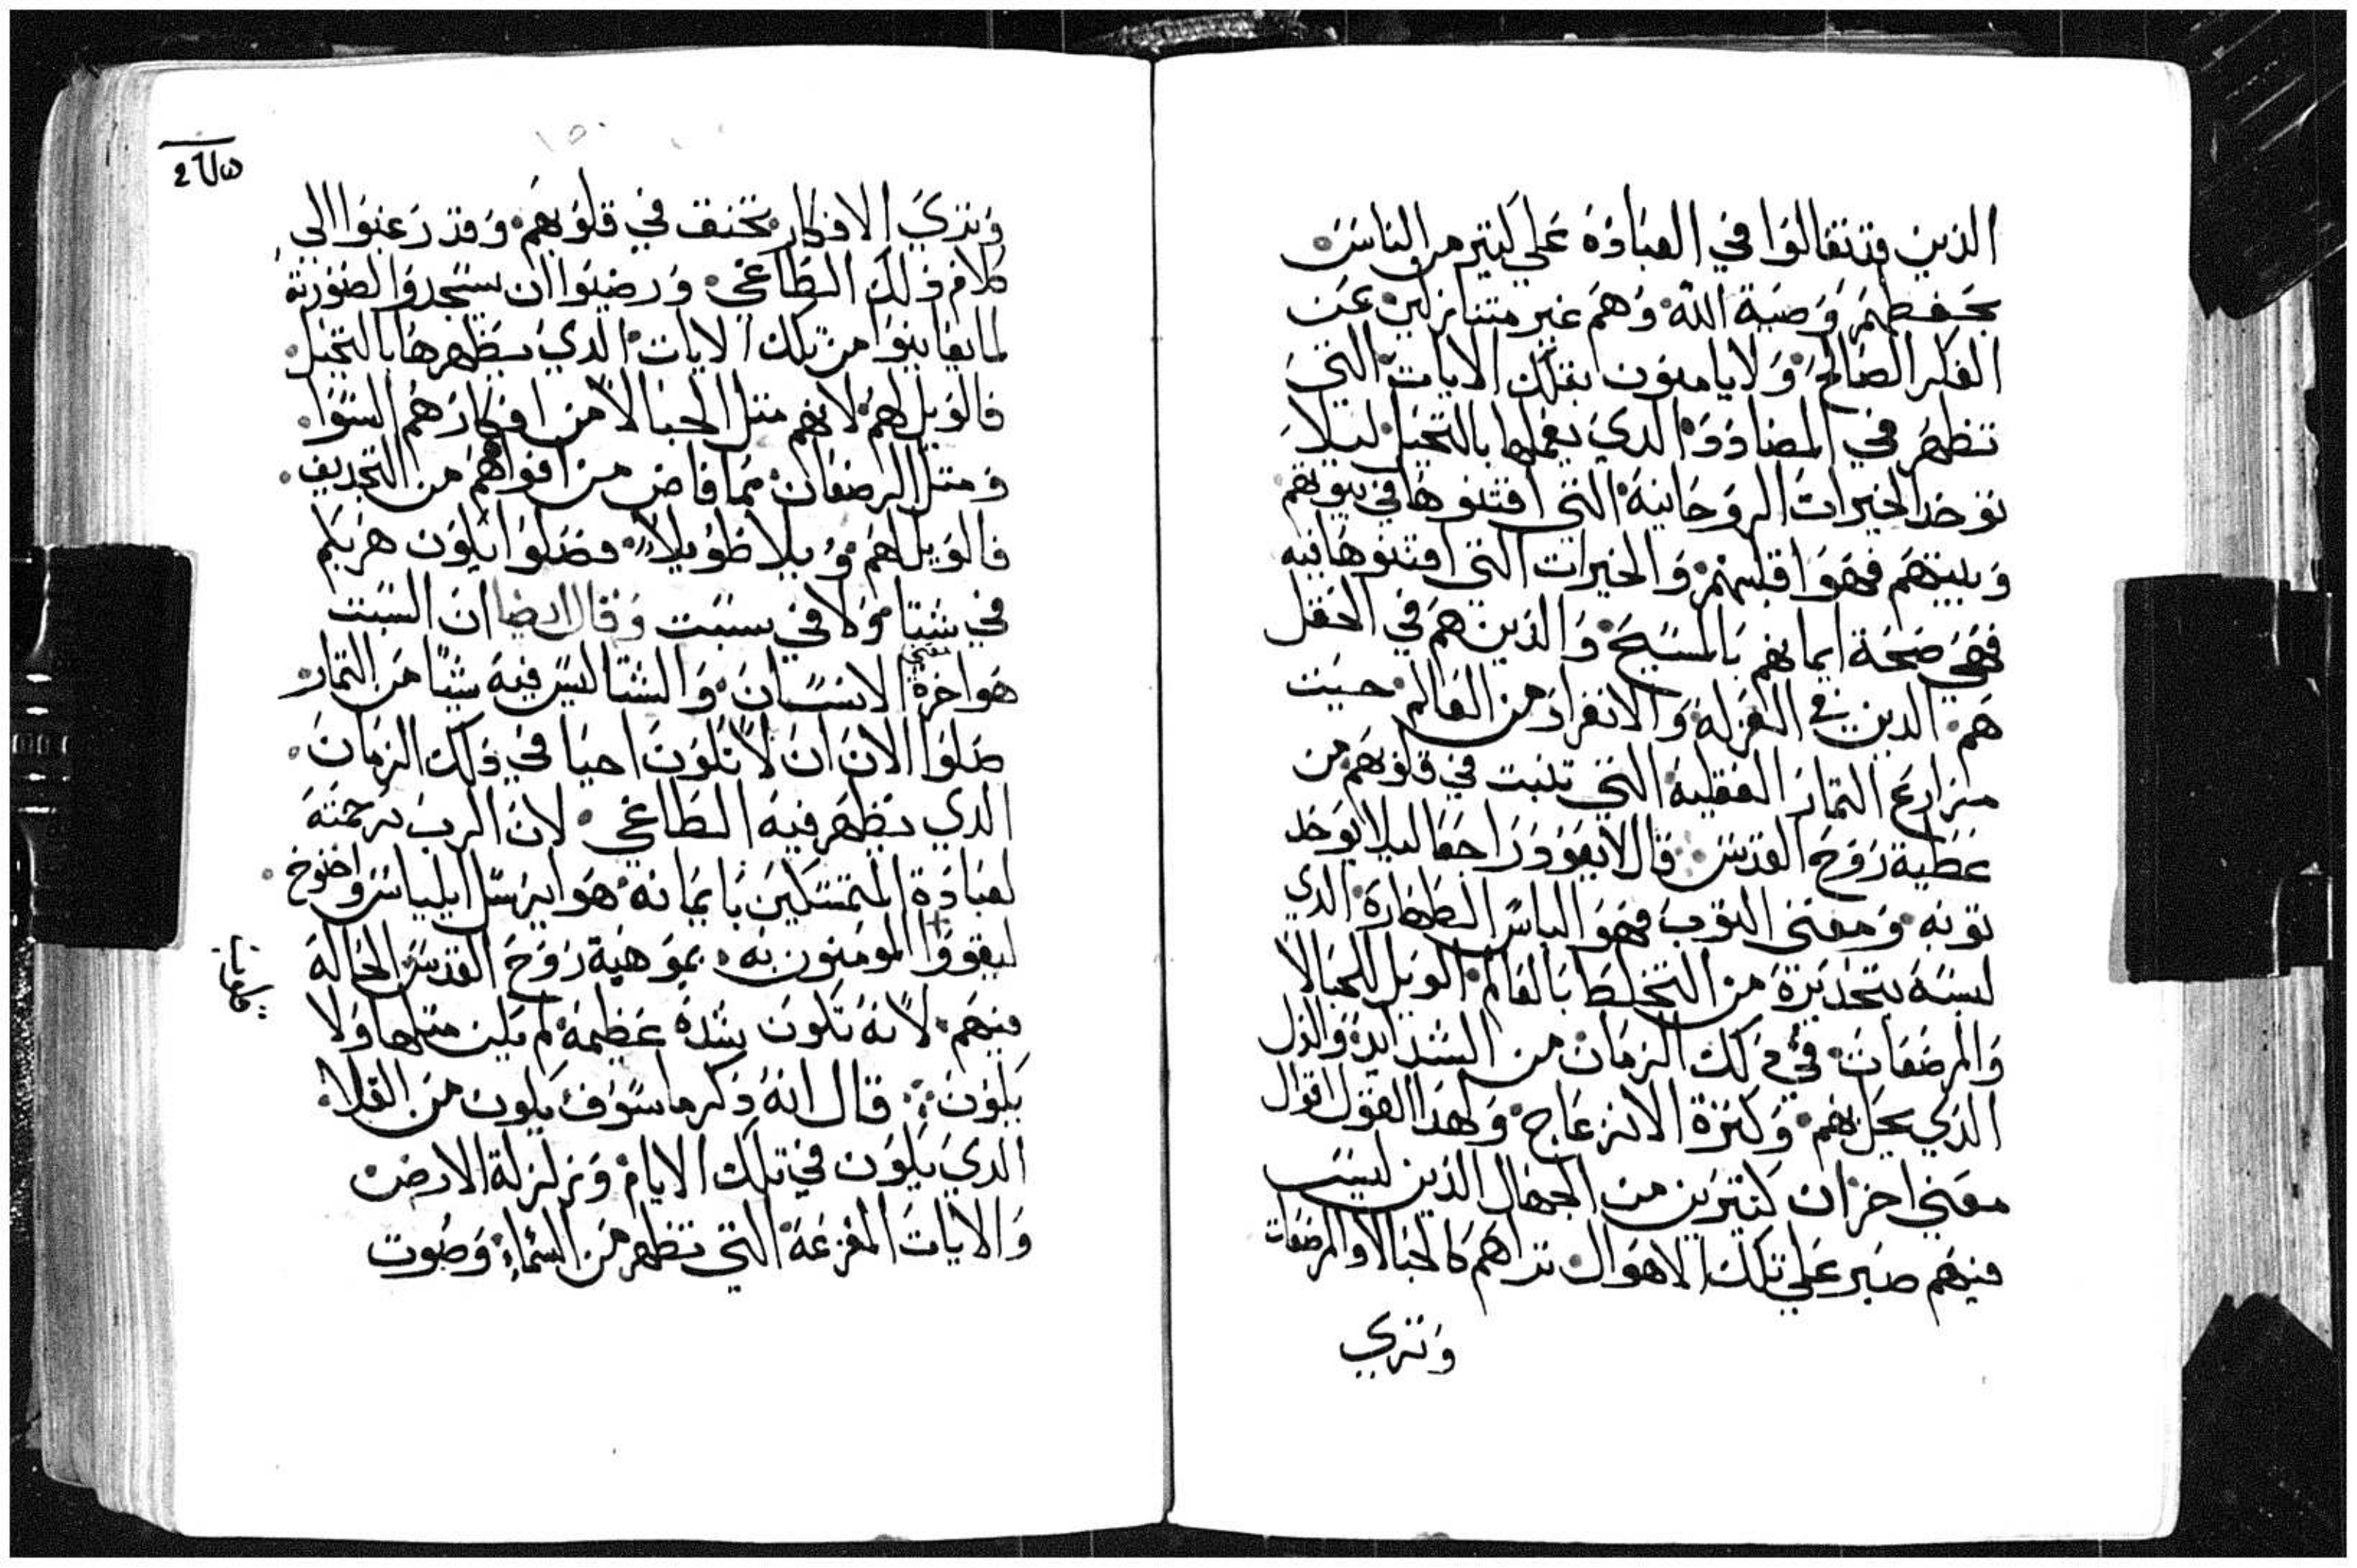 الذين قد تعالوا في العباده علي كتير من الناس
بحفظهم وصية الله وهم غير متنازلين عن
الفكر الصالح ولا يامنون بتلك الايات التي
تظهر في المضادد الدي يعملها بالتخيل ليلا
توخد الخيرات الروحانية التي اقتنوها في بيوتهم
وبيتهم فهوا قلبهم والخيرات التي اقتنوها فيه
فهي صحة ايمانهم بالمسيح والذين هم في الحقل
هم الدين في العزله والانفراد من العالم حيت
مزارع التمار العقلية التي تنبت في قلوبهم من
عطية روح القدس قال لا يعود راجعا ليلا يوخد
توبه ومعني التوب فهو الباس الطهارة الدي
لبسه بتحذيرة من التخلط بالعالم الويل للحبالا
والمرضعات في دلك الزمان من الشدايد والذل
الذي يحل بهم وكترة الانزعاج ولهدا القول اقوال
معني احزان كتيرين من الجهال الذين ليس
فيهم صبر علي تلك الاهوال تراهم كالحبالا والمرضعات
وتري
وتري الافكار تختنق في قلوبهم وقد رغبوا الي
كلام دلك الطاغي ورضيوا ان يستجدوا لصورته
لما يعاينوا من تلك الايات الدي يظهرها بالتخيل
فالويل لهم لانهم متل الحبالا من افكارهم السوا
ومتل الرضعان مما فاض من افواههم من التجديف
فالويل لهم ويلا طويلا فصلوا ليلا يكون هربكم
في شتا ولا في سبت وقال ايضا ان السبت
هو اخرة معني الانسان والشتا ليس فيه شيا من التمار
صلوا الان ان لا تكون احيا في دلك الزمان
الدي يظهر فيه الطاغي لان الرب برحمته
لعبادة المتمسكين بايمانه هو ايرسل ايلياس واخنوخ
ليقووا المومنون به بموهبة روح القدس الحاله
فيهم لانه تكون شدة عظيمة لم يكن متلها ولا
يكون قال انه ذكر ما سوف يكون من القلا
الدي يكون في تلك الايام وزلزلة الارض
والايات المفزعة التي تظهر من السماء وصوت